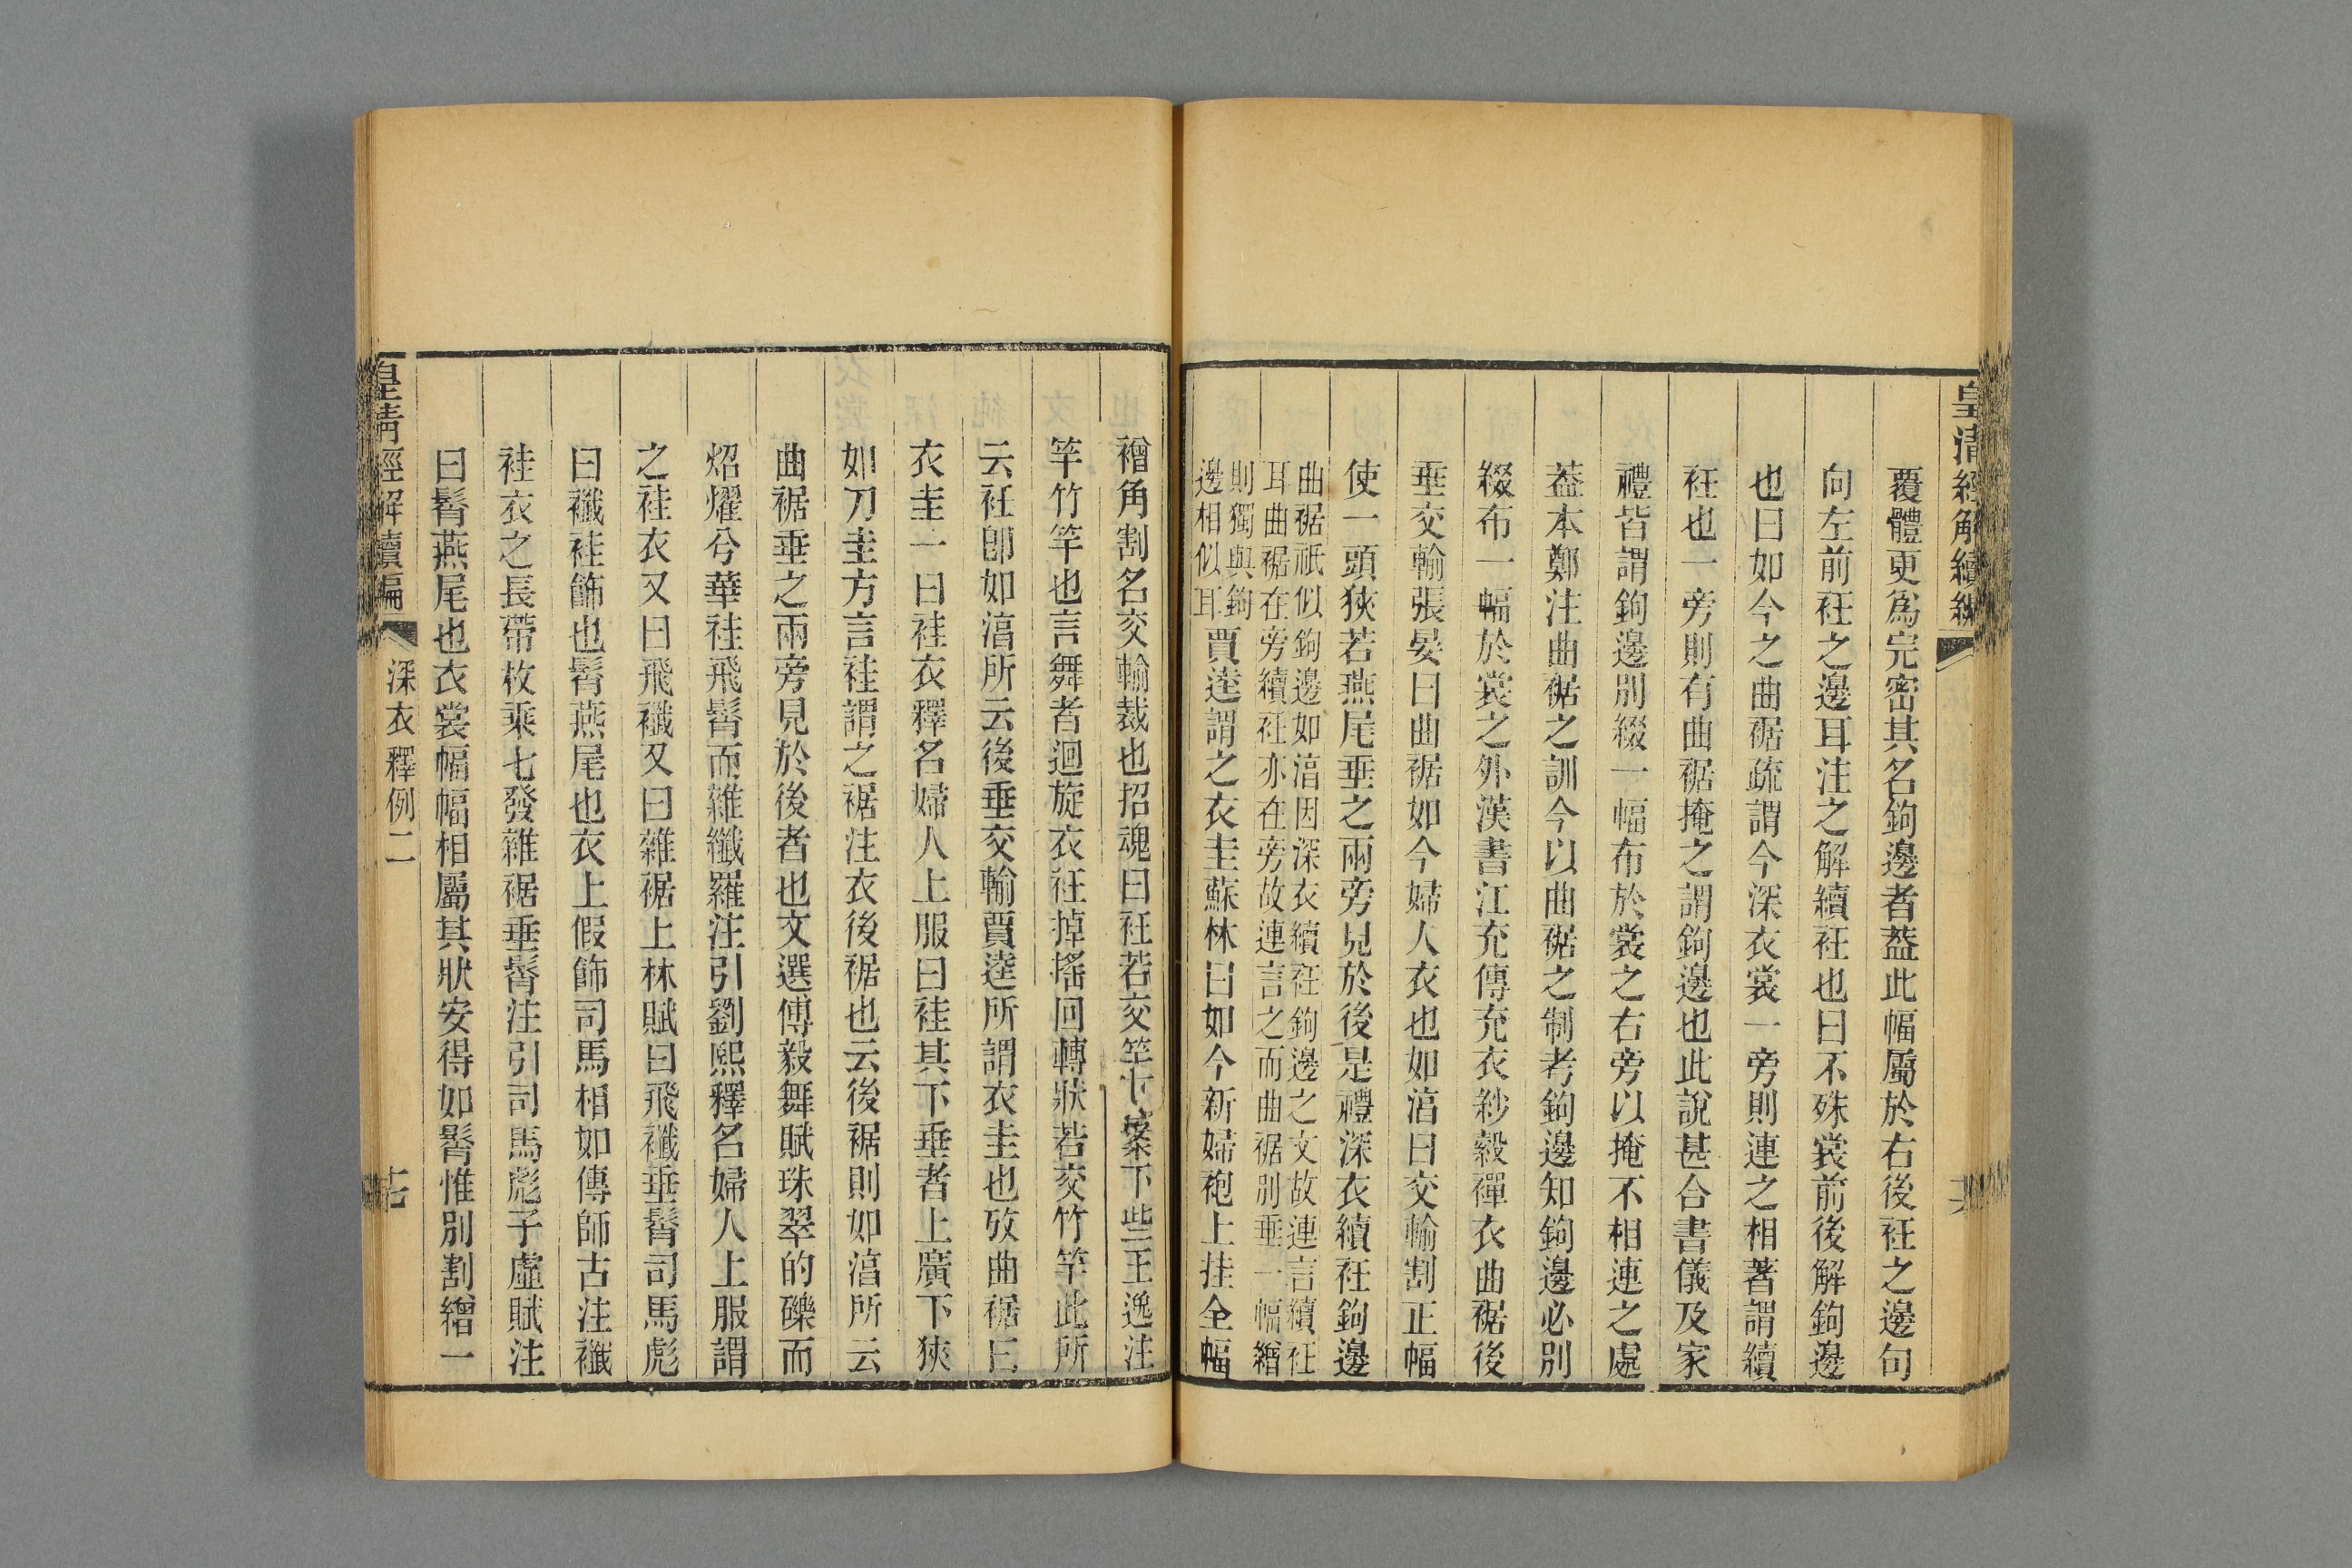 皇清經解續編
覆體更爲完密其名鉤邊者蓋此幅屬於右後衽之邊句
向左前衽之邊耳注之解續衽也曰不殊裳前後解鉤邊
也曰如今之曲裾疏謂今深衣裳一旁則連之相著謂續
衽也一旁則有曲裾掩之謂鉤邊也此說甚合書儀及家
禮皆謂鉤邊別綴一幅布於裳之右旁以掩不相連之處
蓋本鄭注曲裾之訓今以曲裾之制考鉤邊知鉤邊必別
綴布一幅於裳之外漢書江充傳充衣紗縠襌衣曲裾後
垂交輸張晏曰曲裾如今婦人衣也如湻曰交輸割正幅
使一頭狹若燕尾垂之兩旁見於後是禮深衣續衽鉤邊
曲裾祇似鉤邊如湻因深衣續衽鉤邊之文故連言續衽
耳曲裾在旁續衽亦在旁故連言之而曲裾別垂一幅繒
則獨與鉤
邊相似耳
賈逵謂之衣圭蘇林曰如今新婦袍上挂全幅
襘角割名交輸裁也招魂曰衽若交竿下案下些王逸注
竿竹竿也言舞者迴旋衣衽掉搖回轉狀若交竹竿此所
云衽卽如湻所云後垂交輸賈逵所謂衣圭也攷曲裾曰
衣圭一曰袿衣釋名婦人上服曰袿其下垂者上廣下狹
如刀圭方言袿謂之裾注衣後裾也云後裾則如湻所云
曲裾垂之兩旁見於後者也文選傅毅舞賦珠翠的礫而
炤燿兮華袿飛髾而雜纖羅注引劉熙釋名婦人上服謂
之袿衣又曰飛襳又曰雜裾上林賦曰飛襳垂髾司馬彪
曰襳袿飾也髾燕尾也衣上假飾司馬相如傳師古注襳
袿衣之長帶枚乘七發雜裾垂髾注引司馬彪子虛賦注
曰髾燕尾也衣裳幅幅相屬其狀安得如髾惟別割繒一
皇清經解續編
深衣釋例二